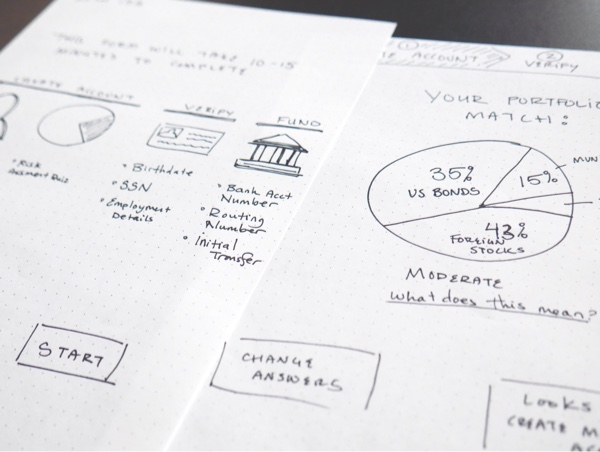 THIS FORM WILL TAKE 10-15
MINUTES TO COMPLETE
CREATE ACCOUNT
VERIFY
FUND
• Risk
Assment Quiz
• Birthdate
• SSN
• Employment
Details
• Bank Acct
Number
• Routing
Number
• Initial
Transfer
START
①
ACCOUNT
②
VERIFY
YOUR PORTFOLIO
MATCH:
35%
US BONDS
15%
MUN
43%
FOREIGN
STOCKS
MODERATE
What does this mean?
CHANGE
ANSWERS
LOOKS
CREATE M